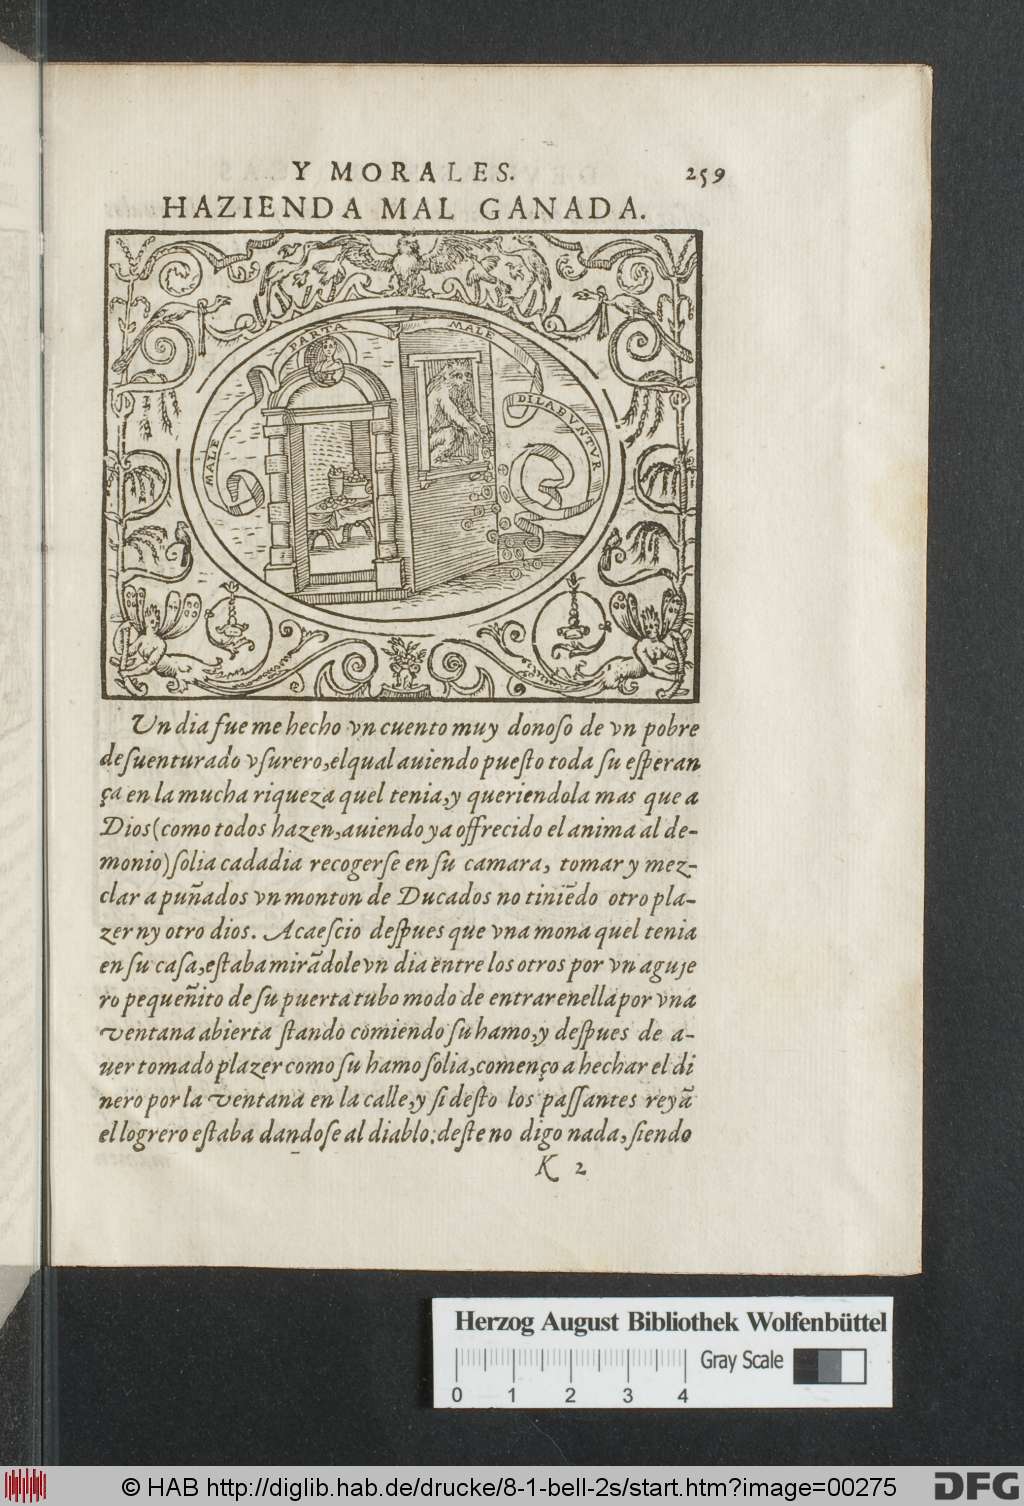 Y MORALES. 259
HAZIENDA MAL GANADA.
MALE PARTA MALE DILABVNTVR
Un dia fue me hecho vn cuento muy donoso de vn pobre
desuenturado vsurero, el qual auiendo puesto toda su esperan
ça en la mucha riqueza quel tenia, y queriendola mas que a
Dios (como todos hazen, auiendo ya offrecido el anima al de-
monio) solia cadadia recogerse en su camara, tomar y mez-
clar a puñados vn monton de Ducados no tiniẽdo otro pla-
zer ny otro dios. Acaescio despues que vna mona quel tenia
en su casa, estaba mirãdole vn dia entre los otros por vn aguje
ro pequeñito de su puerta tubo modo de entrar enella por vna
ventana abierta stando comiendo su hamo, y despues de a-
uer tomado plazer como su hamo solia, començo a hechar el di
nero por la ventana en la calle, y si desto los passantes reyã
el logrero estaba dandose al diablo: deste no digo nada, siendo
K 2
Herzog August Bibliothek Wolfenbüttel
Gray Scale
0 1 2 3 4
© HAB http://diglib.hab.de/drucke/8-1-bell-2s/start.htm?image=00275
DFG